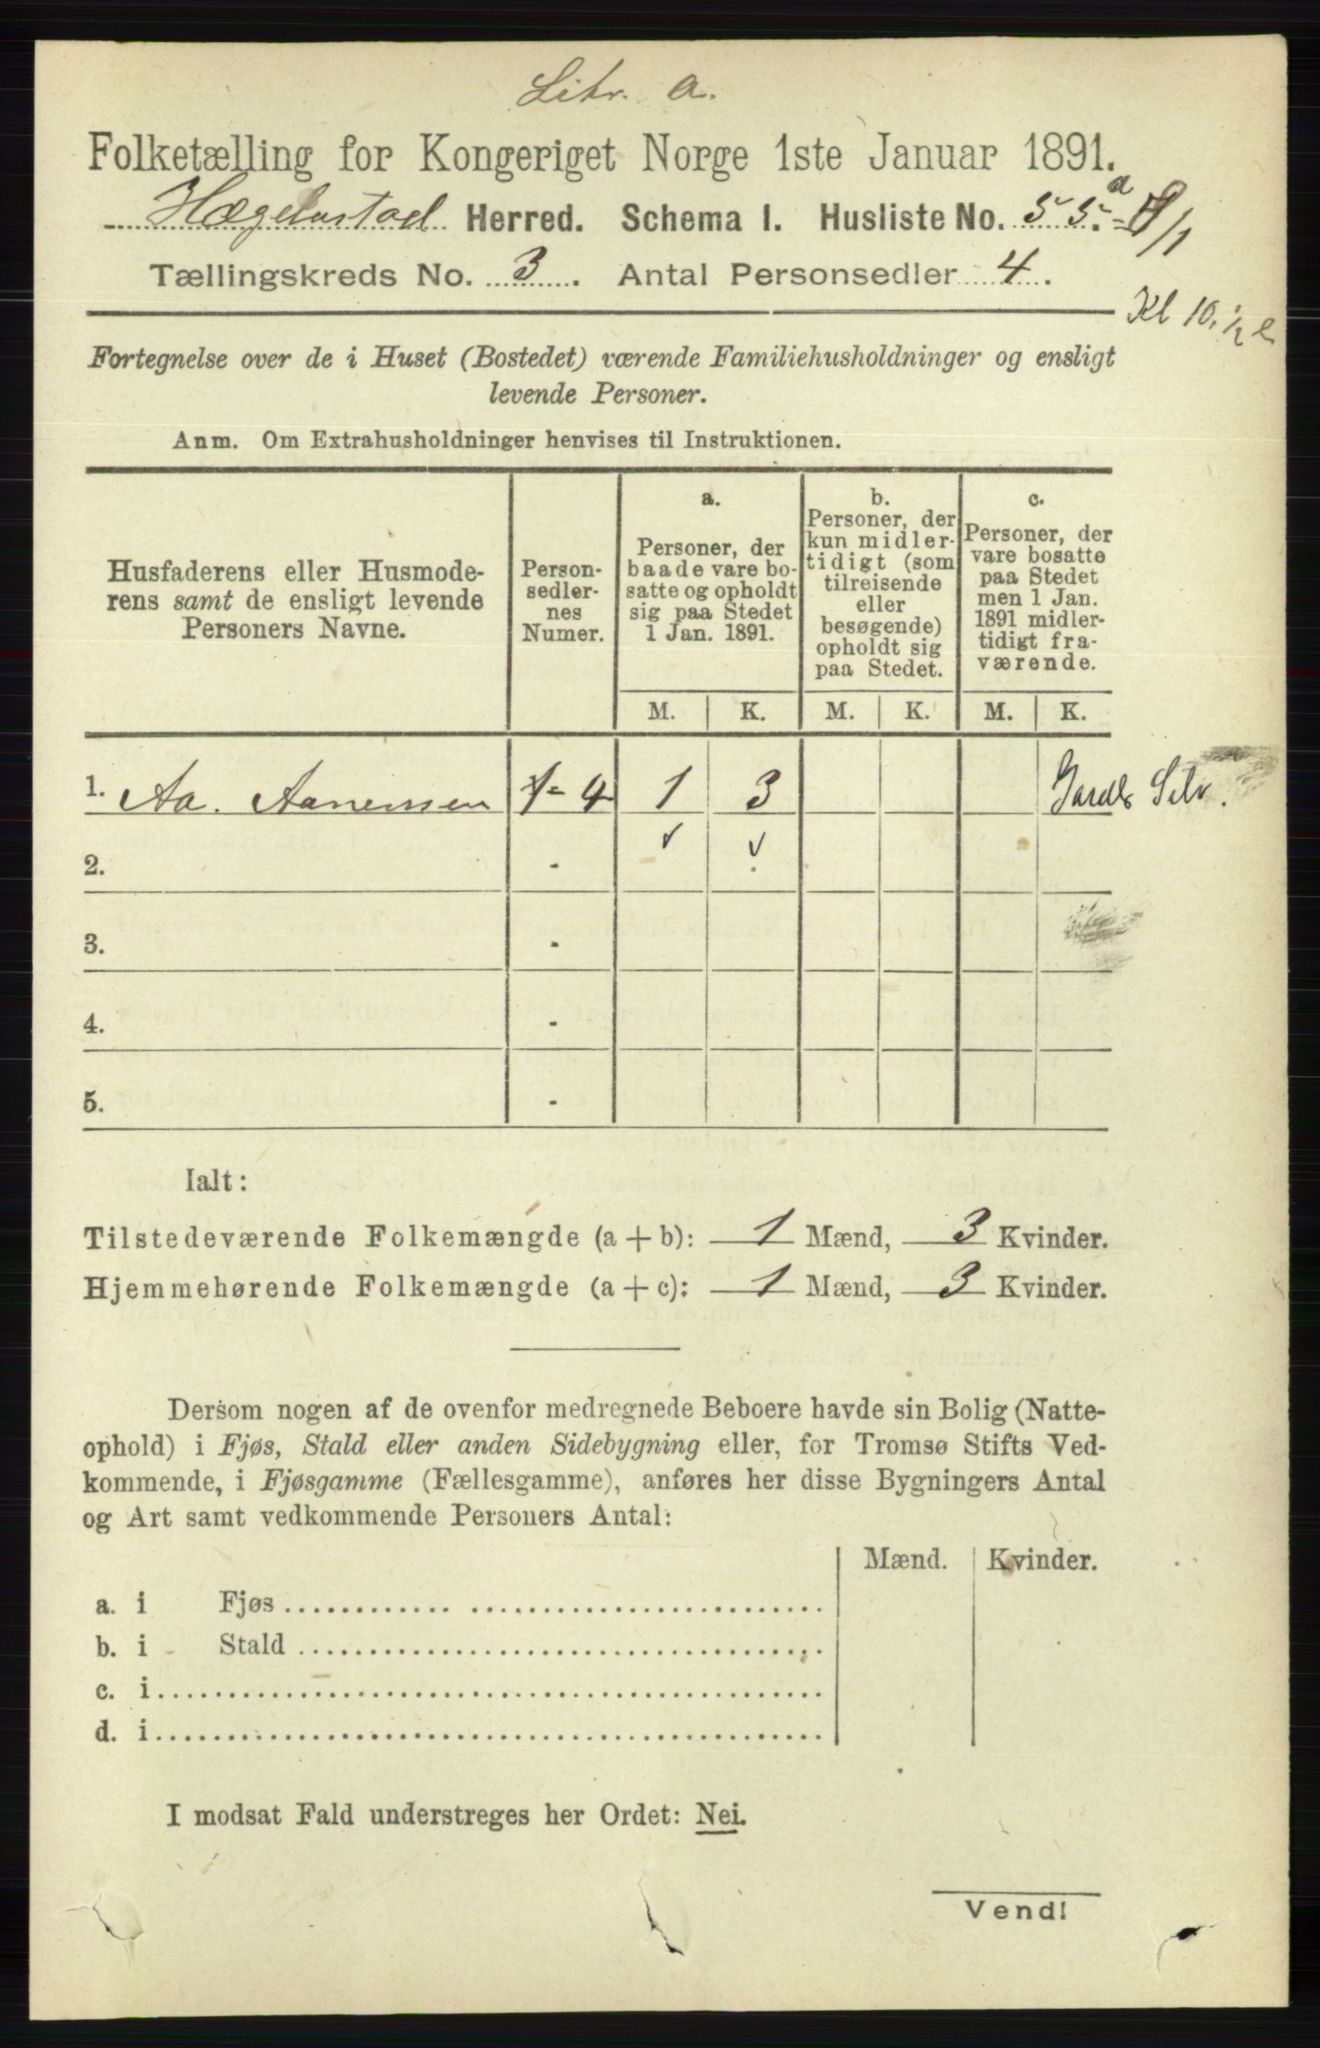 Litr. a.
Folketælling for Kongeriget Norge 1ste Januar 1891.
Hægebostad Herred. Schema I. Husliste No. 55. a
Tællingskreds No. 3. Antal Personsedler 4.
Kl 10, 1/2 e
Fortegnelse over de i Huset (Bostedet) værende Familiehusholdninger og ensligt
levende Personer.
Anm. Om Extrahusholdninger henvises til Instruktionen.
Husfaderens eller Husmode-
rens samt de ensligt levende
Personers Navne.
Person-
sedler-
nes
Numer.
a.
Personer, der
baade vare bo-
satte og opholdt
sig paa Stedet
1 Jan. 1891.
b.
Personer, der
kun midler-
tidigt (som
tilreisende
eller
besøgende)
opholdt sig
paa Stedet.
c.
Personer, der
vare bosatte
paa Stedet
men 1 Jan.
1891 midler-
tidigt fra-
værende.
M. K. M. K. M. K.
1. Aa. Aanensen 1 - 4 1 3 Gardb Selv.
2. -
3. -
4. -
5. -
Ialt:
Tilstedeværende Folkemængde (a + b): 1 Mænd, 3 Kvinder.
Hjemmehørende Folkemængde (a + c): 1 Mænd, 3 Kvinder.
Dersom nogen af de ovenfor medregnede Beboere havde sin Bolig (Natte-
ophold) i Fjøs, Stald eller anden Sidebygning eller, for Tromsø Stifts Ved-
kommende, i Fjøsgamme (Fællesgamme), anføres her disse Bygningers Antal
og Art samt vedkommende Personers Antal:
Mænd. Kvinder.
a. i Fjøs
b. i Stald
c. i
d. i
I modsat Fald understreges her Ordet: Nei.
Vend!